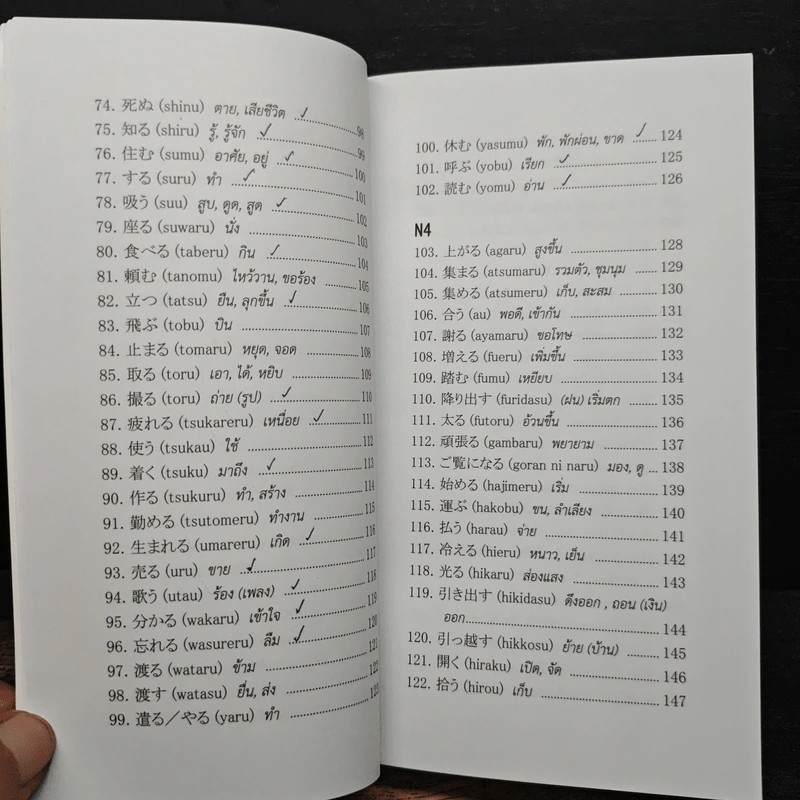 74. 死ぬ (shinu) ตาย, เสียชีวิต ✓ 98
75. 知る (shiru) รู้, รู้จัก ✓ 99
76. 住む (sumu) อาศัย, อยู่ ✓ 100
77. する (suru) ทำ ✓ 101
78. 吸う (suu) สูบ, ดูด, สูด ✓ 102
79. 座る (suwaru) นั่ง 103
80. 食べる (taberu) กิน ✓ 104
81. 頼む (tanomu) ไหว้วาน, ขอร้อง 105
82. 立つ (tatsu) ยืน, ลุกขึ้น ✓ 106
83. 飛ぶ (tobu) บิน 107
84. 止まる (tomaru) หยุด, จอด 108
85. 取る (toru) เอา, ได้, หยิบ 109
86. 撮る (toru) ถ่าย (รูป) ✓ 110
87. 疲れる (tsukareru) เหนื่อย ✓ 111
88. 使う (tsukau) ใช้ 112
89. 着く (tsuku) มาถึง ✓ 113
90. 作る (tsukuru) ทำ, สร้าง 114
91. 勤める (tsutomeru) ทำงาน 115
92. 生まれる (umareru) เกิด ✓ 116
93. 売る (uru) ขาย ✓ 117
94. 歌う (utau) ร้อง (เพลง) ✓ 118
95. 分かる (wakaru) เข้าใจ ✓ 119
96. 忘れる (wasureru) ลืม ✓ 120
97. 渡る (wataru) ข้าม 121
98. 渡す (watasu) ยื่น, ส่ง 122
99. 遣る／やる (yaru) ทำ 123
100. 休む (yasumu) พัก, พักผ่อน, ขาด ✓ 124
101. 呼ぶ (yobu) เรียก ✓ 125
102. 読む (yomu) อ่าน ✓ 126
N4
103. 上がる (agaru) สูงขึ้น 128
104. 集まる (atsumaru) รวมตัว, ชุมนุม 129
105. 集める (atsumeru) เก็บ, สะสม 130
106. 合う (au) พอดี, เข้ากัน 131
107. 謝る (ayamaru) ขอโทษ 132
108. 増える (fueru) เพิ่มขึ้น 133
109. 踏む (fumu) เหยียบ 134
110. 降り出す (furidasu) (ฝน) เริ่มตก 135
111. 太る (futoru) อ้วนขึ้น 136
112. 頑張る (gambaru) พยายาม 137
113. ご覧になる (goran ni naru) มอง, ดู ... 138
114. 始める (hajimeru) เริ่ม 139
115. 運ぶ (hakobu) ขน, ลำเลียง 140
116. 払う (harau) จ่าย 141
117. 冷える (hieru) หนาว, เย็น 142
118. 光る (hikaru) ส่องแสง 143
119. 引き出す (hikidasu) ดึงออก , ถอน (เงิน)
ออก 144
120. 引っ越す (hikkosu) ย้าย (บ้าน) 145
121. 開く (hiraku) เปิด, จัด 146
122. 拾う (hirou) เก็บ 147